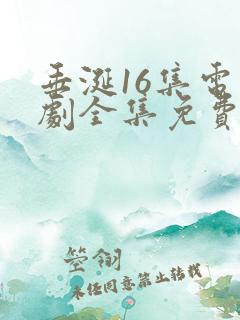 垂涎16集電
劇全集免費
箜翎
未經同意禁止轉載